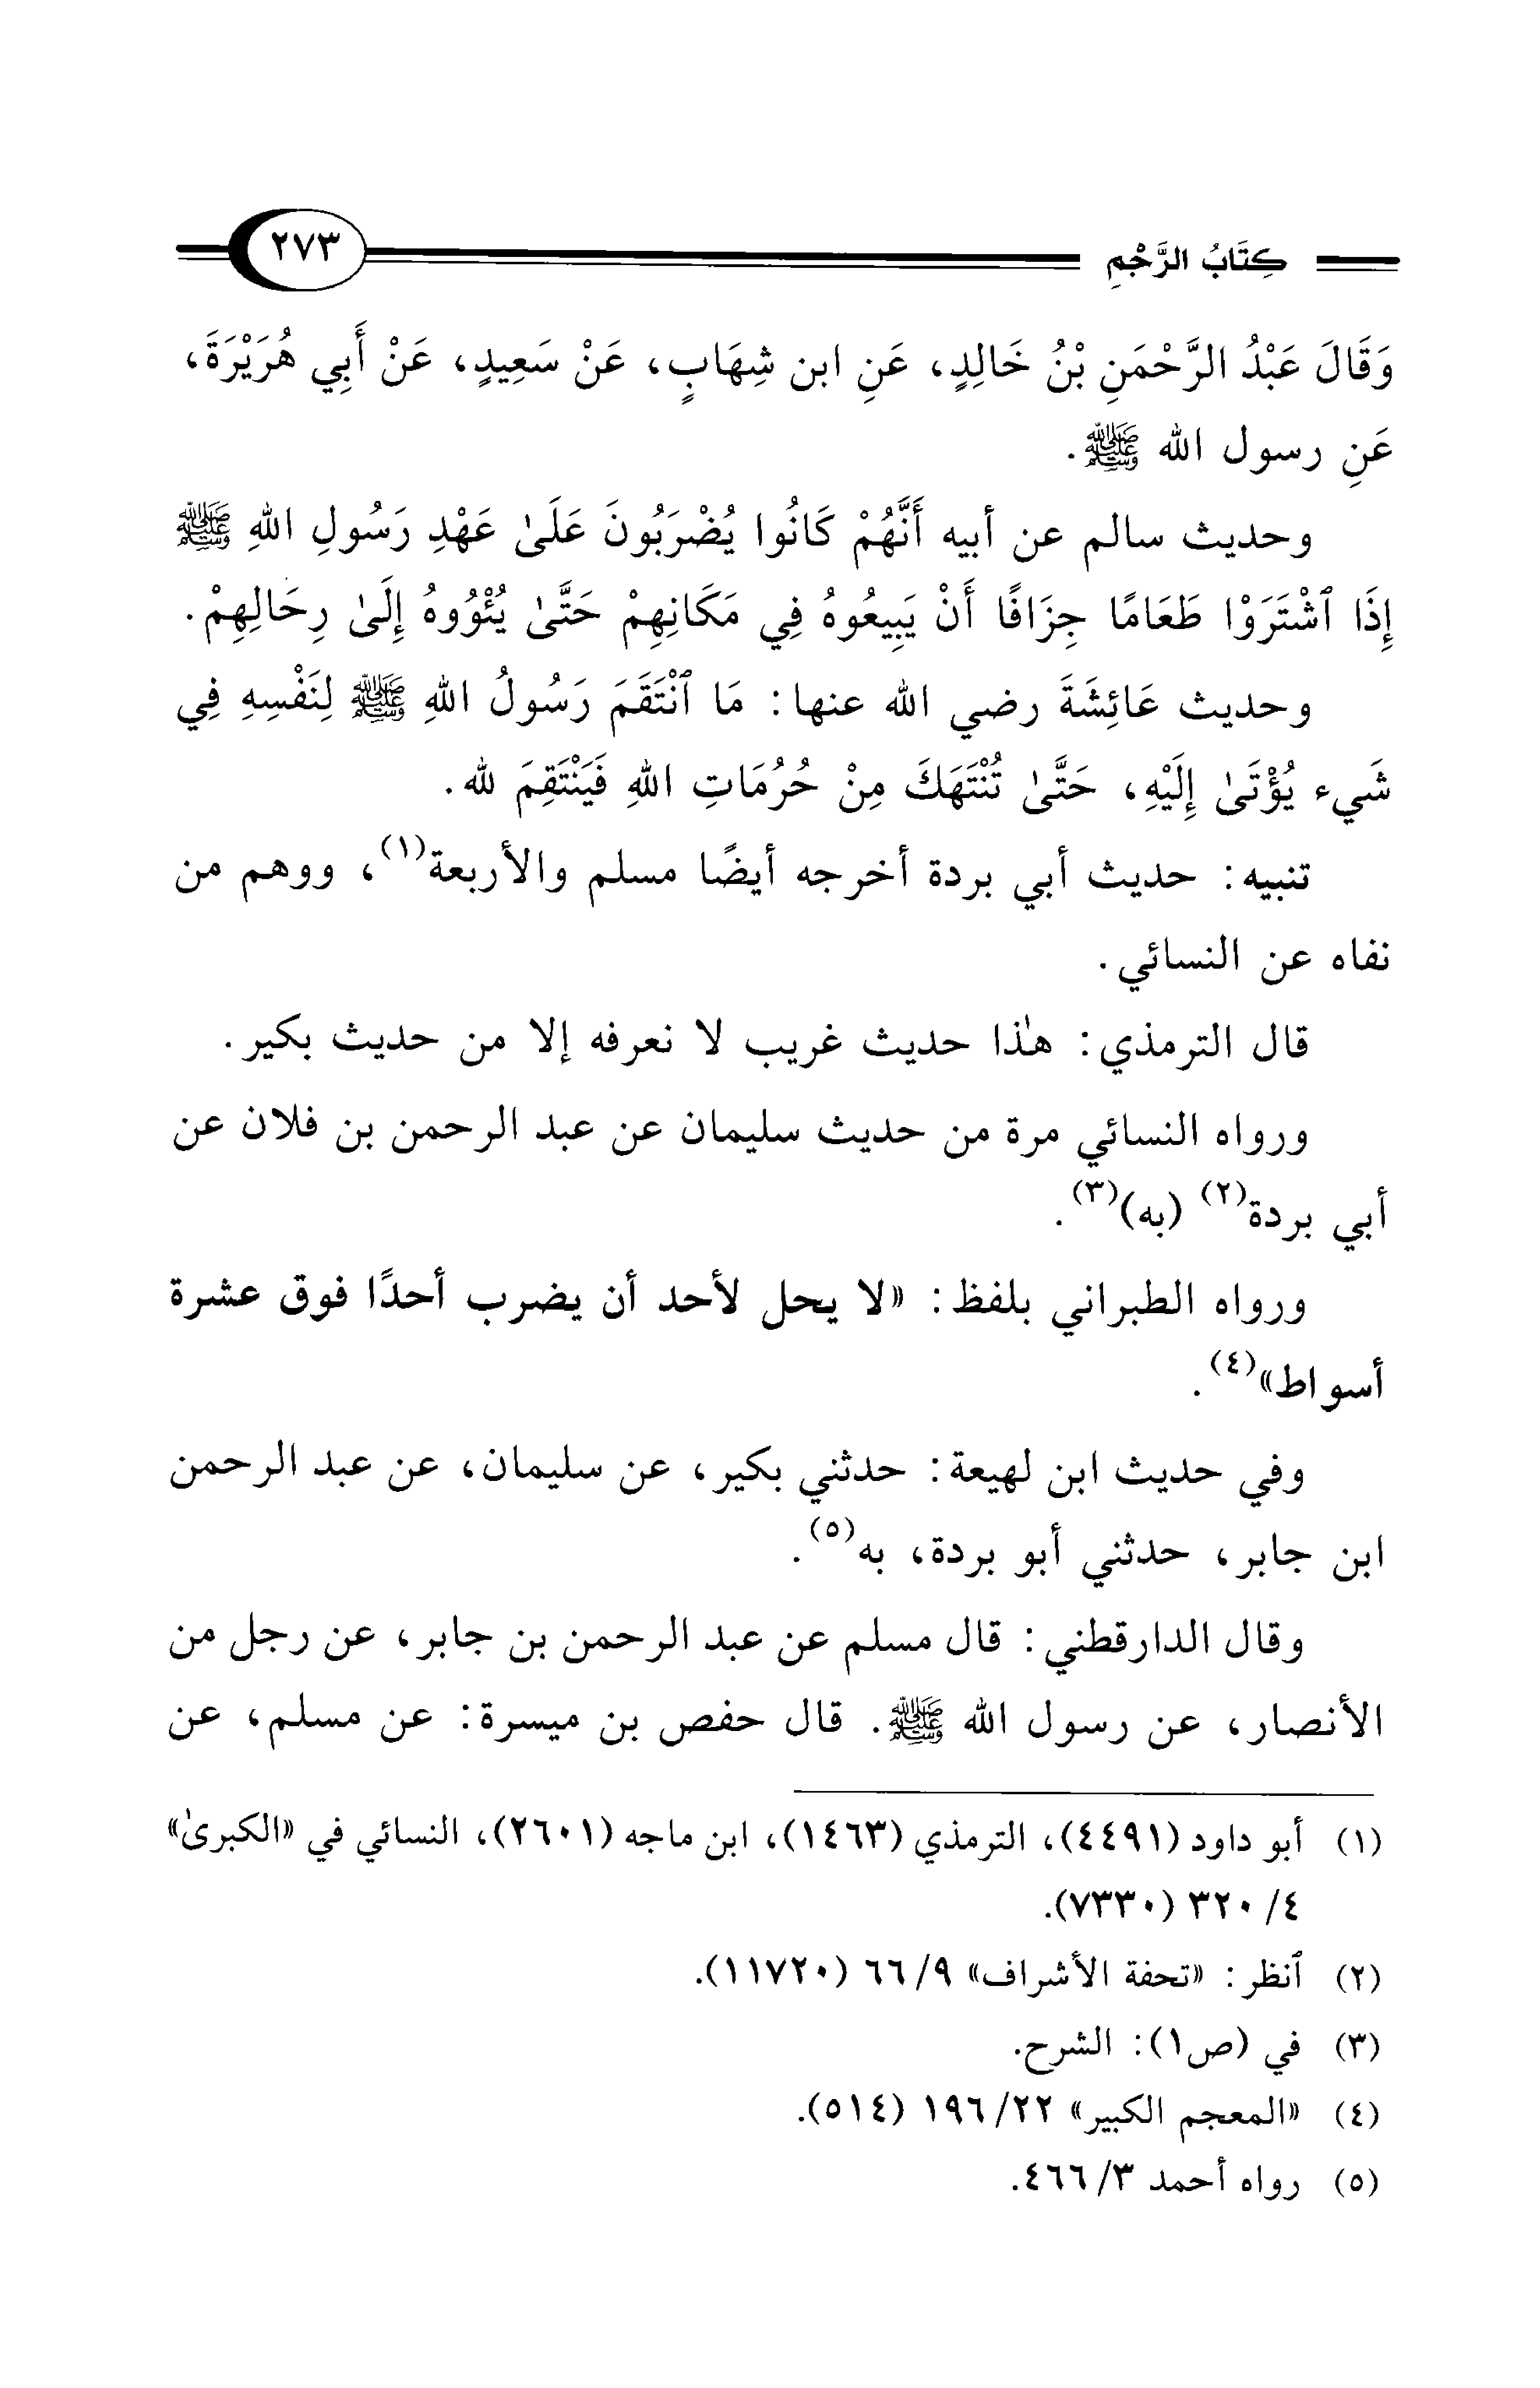 كِتَابُ الرَّجْمِ ٢٧٣
وَقَالَ عَبْدُ الرَّحْمَنِ بْنُ خَالِدٍ، عَنِ ابن شِهَابٍ، عَنْ سَعِيدٍ، عَنْ أَبِي هُرَيْرَةَ،
عَنِ رسول الله ﷺ.
وحديث سالم عن أبيه أَنَّهُمْ كَانُوا يُضْرَبُونَ عَلَىٰ عَهْدِ رَسُولِ اللهِ ﷺ
إِذَا ٱشْتَرَوْا طَعَامًا جِزَافًا أَنْ يَبِيعُوهُ فِي مَكَانِهِمْ حَتَّىٰ يُئْوُوهُ إِلَىٰ رِحَالِهِمْ.
وحديث عَائِشَةَ رضي الله عنها: مَا ٱنْتَقَمَ رَسُولُ اللهِ ﷺ لِنَفْسِهِ فِي
شَيء يُؤْتَىٰ إِلَيْهِ، حَتَّىٰ تُنْتَهَكَ مِنْ حُرُمَاتِ اللهِ فَيَنْتَقِمَ لله.
تنبيه: حديث أبي بردة أخرجه أيضًا مسلم والأربعة(١)، ووهم من
نفاه عن النسائي.
قال الترمذي: هٰذا حديث غريب لا نعرفه إلا من حديث بكير.
ورواه النسائي مرة من حديث سليمان عن عبد الرحمن بن فلان عن
أبي بردة(٢) (به)(٣).
ورواه الطبراني بلفظ: «لا يحل لأحد أن يضرب أحدًا فوق عشرة
أسواط»(٤).
وفي حديث ابن لهيعة: حدثني بكير، عن سليمان، عن عبد الرحمن
ابن جابر، حدثني أبو بردة، به(٥).
وقال الدارقطني: قال مسلم عن عبد الرحمن بن جابر، عن رجل من
الأنصار، عن رسول الله ﷺ. قال حفص بن ميسرة: عن مسلم، عن
(١) أبو داود (٤٤٩١)، الترمذي (١٤٦٣)، ابن ماجه (٢٦٠١)، النسائي في «الكبرىٰ»
٤/ ٣٢٠ (٧٣٣٠).
(٢) ٱنظر: «تحفة الأشراف» ٩/ ٦٦ (١١٧٢٠).
(٣) في (ص١): الشرح.
(٤) «المعجم الكبير» ٢٢/ ١٩٦ (٥١٤).
(٥) رواه أحمد ٣/ ٤٦٦.